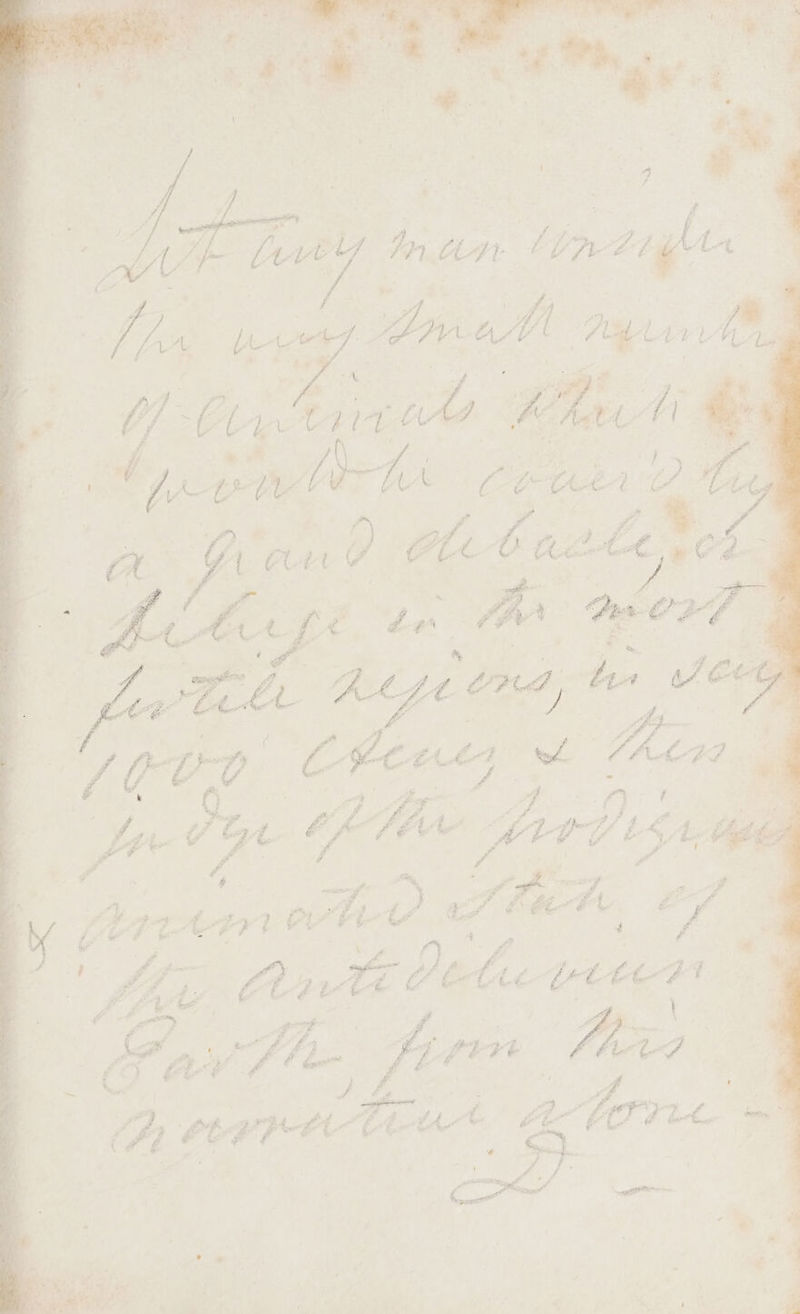 Let any man consider
the very small number
of animals which
would be cover'd by
a grand debacle, or
Deluge in the most
fertile regions, in say
1000 Caves, & then
judge of the prodigious
& animated State of
the Antediluvian
Earth, from this
narrative alone -
D -